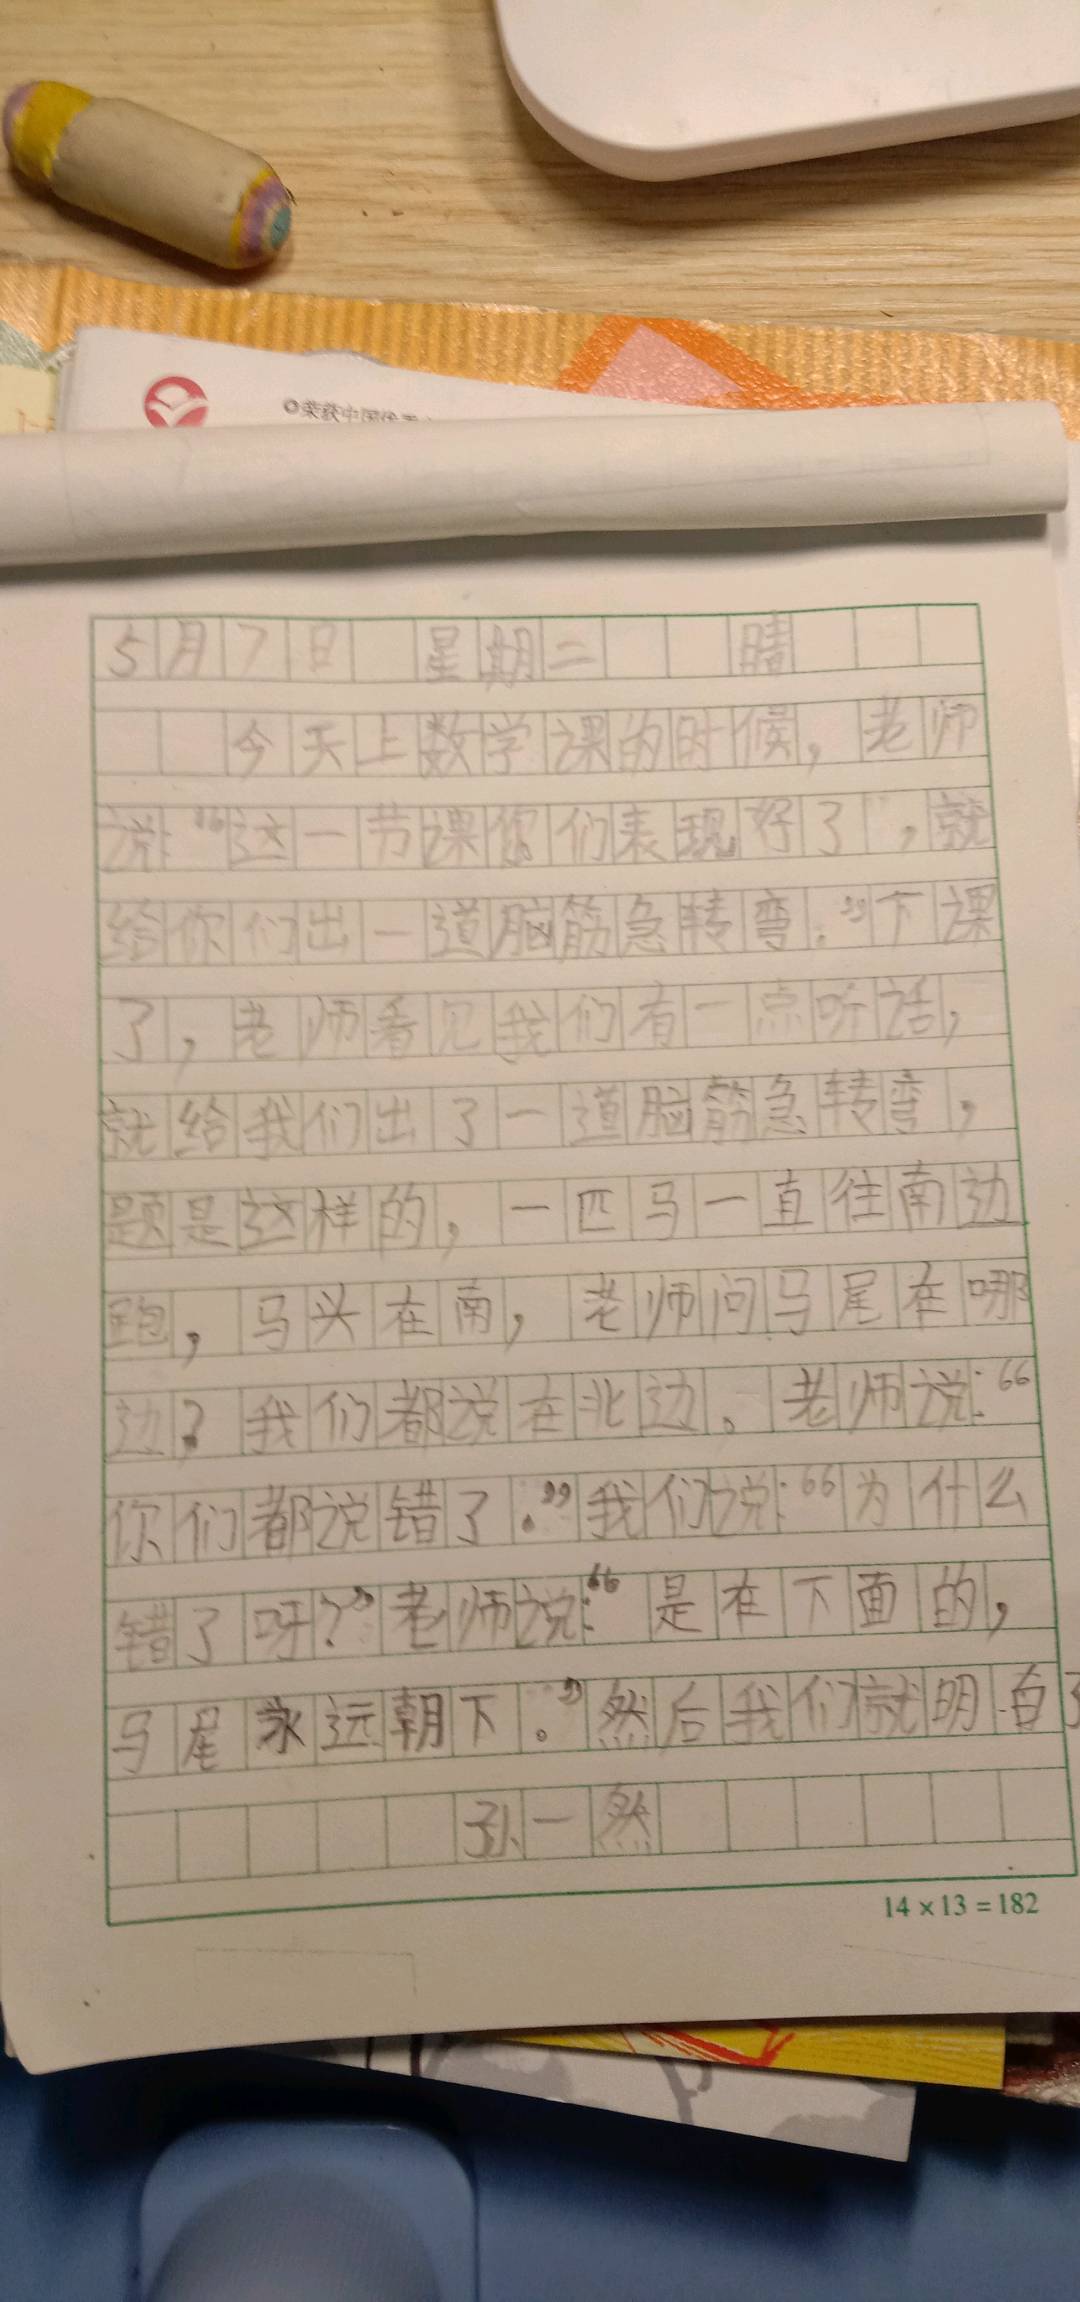 荣获中国
5月7日 星期二 晴
今天上数学课的时候，老师
说：“这一节课你们表现好了，就
给你们出一道脑筋急转弯.”下课
了，老师看见我们有一点听话，
就给我们出了一道脑筋急转弯，
题是这样的，一匹马一直往南边
跑，马头在南，老师问马尾在哪
边？我们都说在北边。老师说：“
你们都说错了.”我们说：“为什么
错了呀？”老师说：“是在下面的，
马尾永远朝下。”然后我们就明白了
孙一然
14×13=182